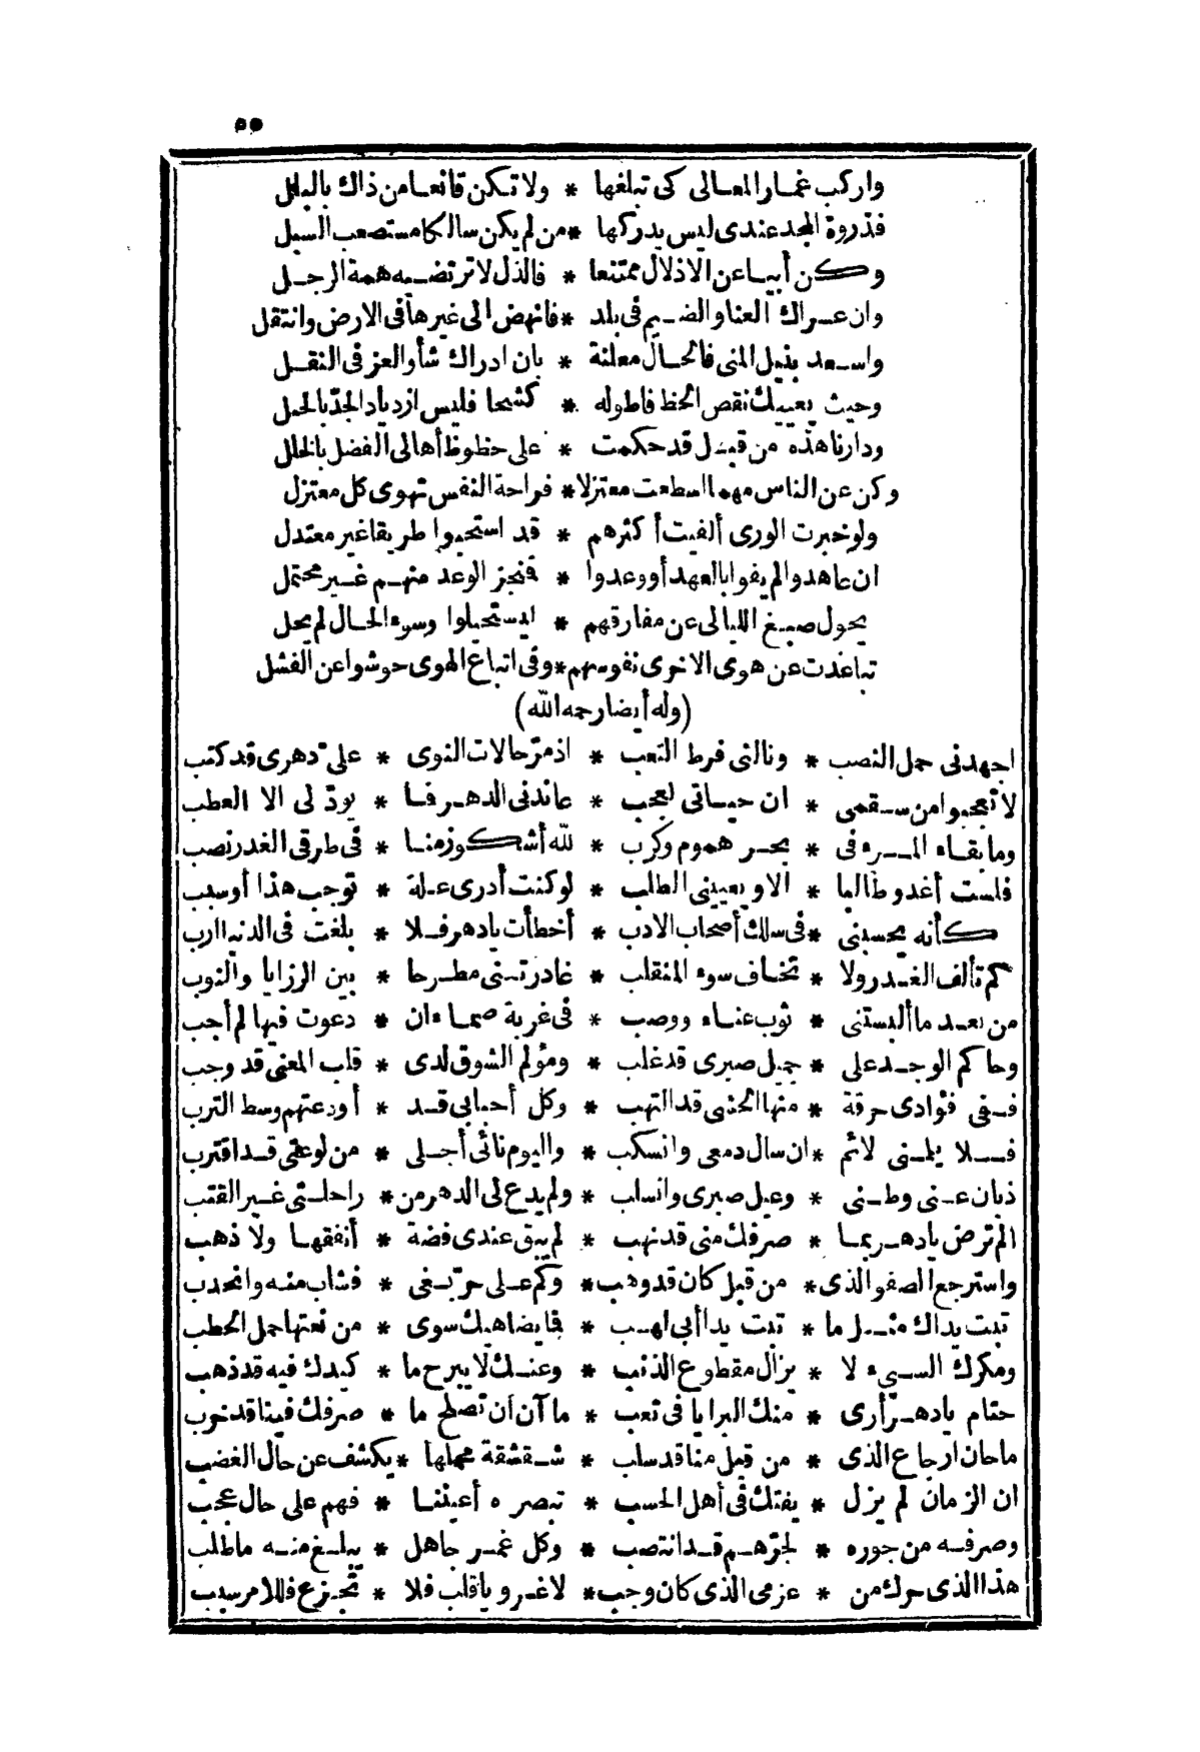 ٥٥
واركب غمار المعالى كى تبلغها * ولا تكن قانعا من ذاك بالبلل
فذروة المجد عندى ليس يدركها * من لم يكن سالكا مستصعب السبل
وكن أبيا عن الاذلال ممتنعا * فالذل لا ترتضيه همة الرجل
وان عراك العنا والضيم فى بلد * فانهض الى غيرها فى الارض وانتقل
واسعد بنيل المنى فالحال معلنة * بان ادراك شأو العز فى النقل
وحيث يعييك نقص الحظ فاطوله * كشحا فليس ازدياد الجد بالحيل
ودارنا هذه من قبل قد حكمت * على حظوظ أهالى الفضل بالخلل
وكن عن الناس مهما اسطعت معتزلا * فراحة النفس تهوى كل معتزل
ولو خبرت الورى ألفيت أكثرهم * قد استحبوا طريقا غير معتدل
ان عاهدوا لم يفوا بالعهد أو وعدوا * فنجز الوعد منهم غير محتمل
يحول صبغ الليالى عن مفارقهم * ليستحيلوا وسوء الحال لم يحل
تباعدت عن هوى الاخرى نفوسهم * وفى اتباع الهوى حوشوا عن الفشل
(وله أيضا رحمه الله)
اجهدنى حمل النصب * ونالنى فرط التعب * اذ مرّ حالات النوى * علىّ دهرى قد كتب
لا تعجبوا من سقمى * ان حياتى لعجب * عاندنى الدهر فما * يودّ لى الا العطب
وما بقاء المرء فى * بحر هموم وكرب * لله أشكو زمنا * فى طرقى الغدر نصب
فلست أغدو طالبا * الا ويعيينى الطلب * لو كنت أدرى علة * توجب هذا أو سبب
كأنه يحسبنى * فى سلك أصحاب الادب * أخطأت يا دهر فلا * بلغت فى الدنيا ارب
كم تألف الغدر ولا * تخاف سوء المنقلب * غادرتنى مطرحا * بين الرزايا والنوب
من بعد ما ألبستنى * ثوب عناء ووصب * فى غربة صماء ان * دعوت فيها لم أجب
وحاكم الوجد على * جميل صبرى قد غلب * ومؤلم الشوق لدى * قلب المعنى قد وجب
ففى فؤادى حرقة * منها الحشى قد التهب * وكل أحبابى قد * أودعتهم وسط الترب
فلا يلمنى لائم * ان سال دمعى وانسكب * واليوم نائى أجلى * من لوعتى قد اقترب
ذبان عنى وطنى * وعيل صبرى وانسلب * ولم يدع لى الدهر من * راحلتى غير القتب
الم ترض يا دهر بما * صرفك منى قد نهب * لم يبق عندى فضة * أنفقها ولا ذهب
واسترجع الصفو الذى * من قبل كان قد وهب * وكم على حرّ بغى * فشاب منه وانحدب
تبت يداك مثل ما * تبت يدا أبى لهب * فما يضاهيك سوى * من نعتها حمل الحطب
ومكرك السيىء لا * يزال مقطوع الذنب * وعنك لا يبرح ما * كيدك فيه قد ذهب
حتام يا دهر أرى * منك البرايا فى تعب * ما آن أن تصلح ما * صرفك فينا قد خرب
ما حان ارجاع الذى * من قبل منا قد سلب * شقشقة مجملها * يكشف عن حال الغضب
ان الزمان لم يزل * يفتك فى أهل الحسب * تبصره أعيننا * فهم على حال عجب
وصرفه من جوره * لجرّهم قد انتصب * وكل غمر جاهل * يبلغ منه ما طلب
هذا الذى حرك من * عزمى الذى كان وجب * لا غرو يا قلب فلا * تجزع فللامر سبب